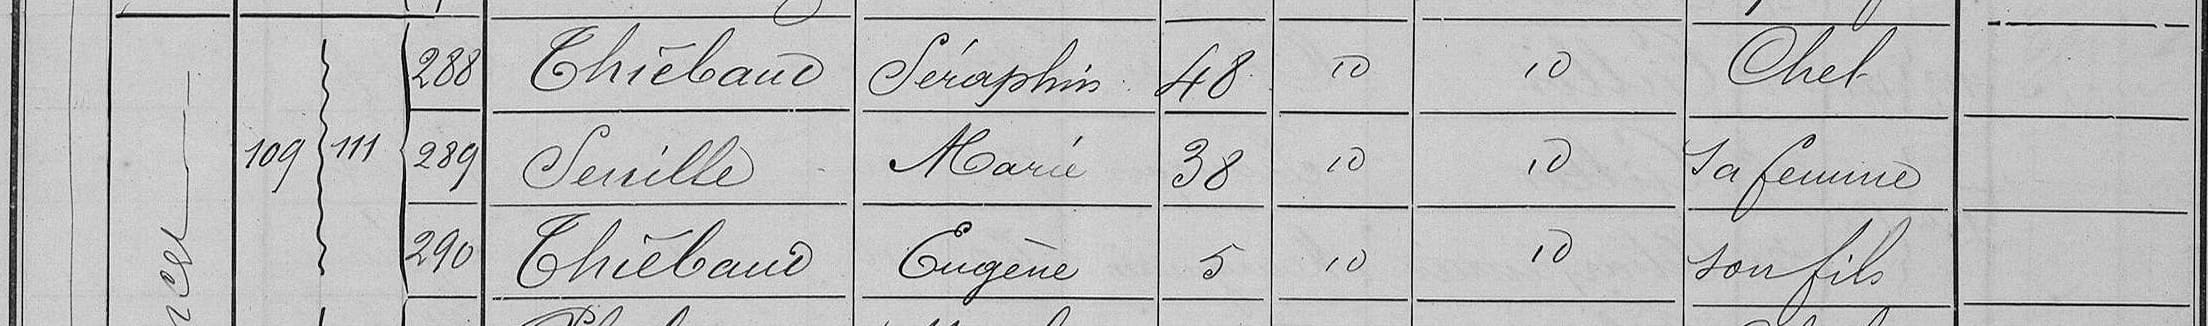 288 Thiébaud Séraphin 48 id id Chef
109 111 289 Senille Marie 38 id id sa femme
290 Thiébaud Eugène 5 id id son fils